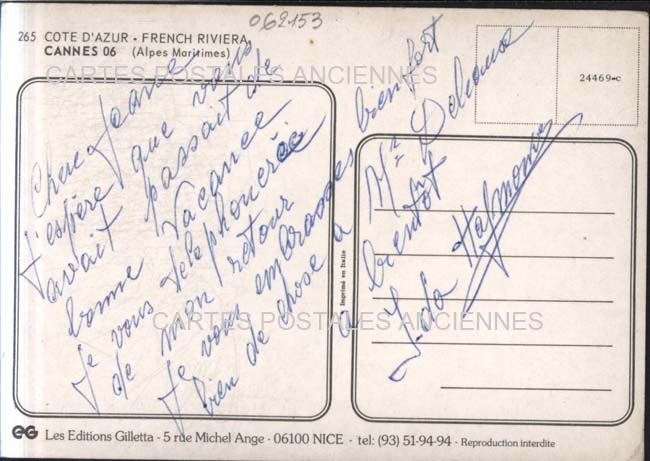 062153
265 COTE D'AZUR - FRENCH RIVIERA
CANNES 06 (Alpes Maritimes)
24469-c
CARTES POSTALES ANCIENNES
Chère Jeanne
J'espère que vous
avait passait de
bonne vacance
Je vous telephonerée
de mon retour
Je vous embrasses bien fort
bien de chose a Mr
a bientot
Imprimé en Italie
CARTES POSTALES ANCIENNES
EG Les Editions Gilletta - 5 rue Michel Ange - 06100 NICE - tel: (93) 51-94-94 - Reproduction interdite